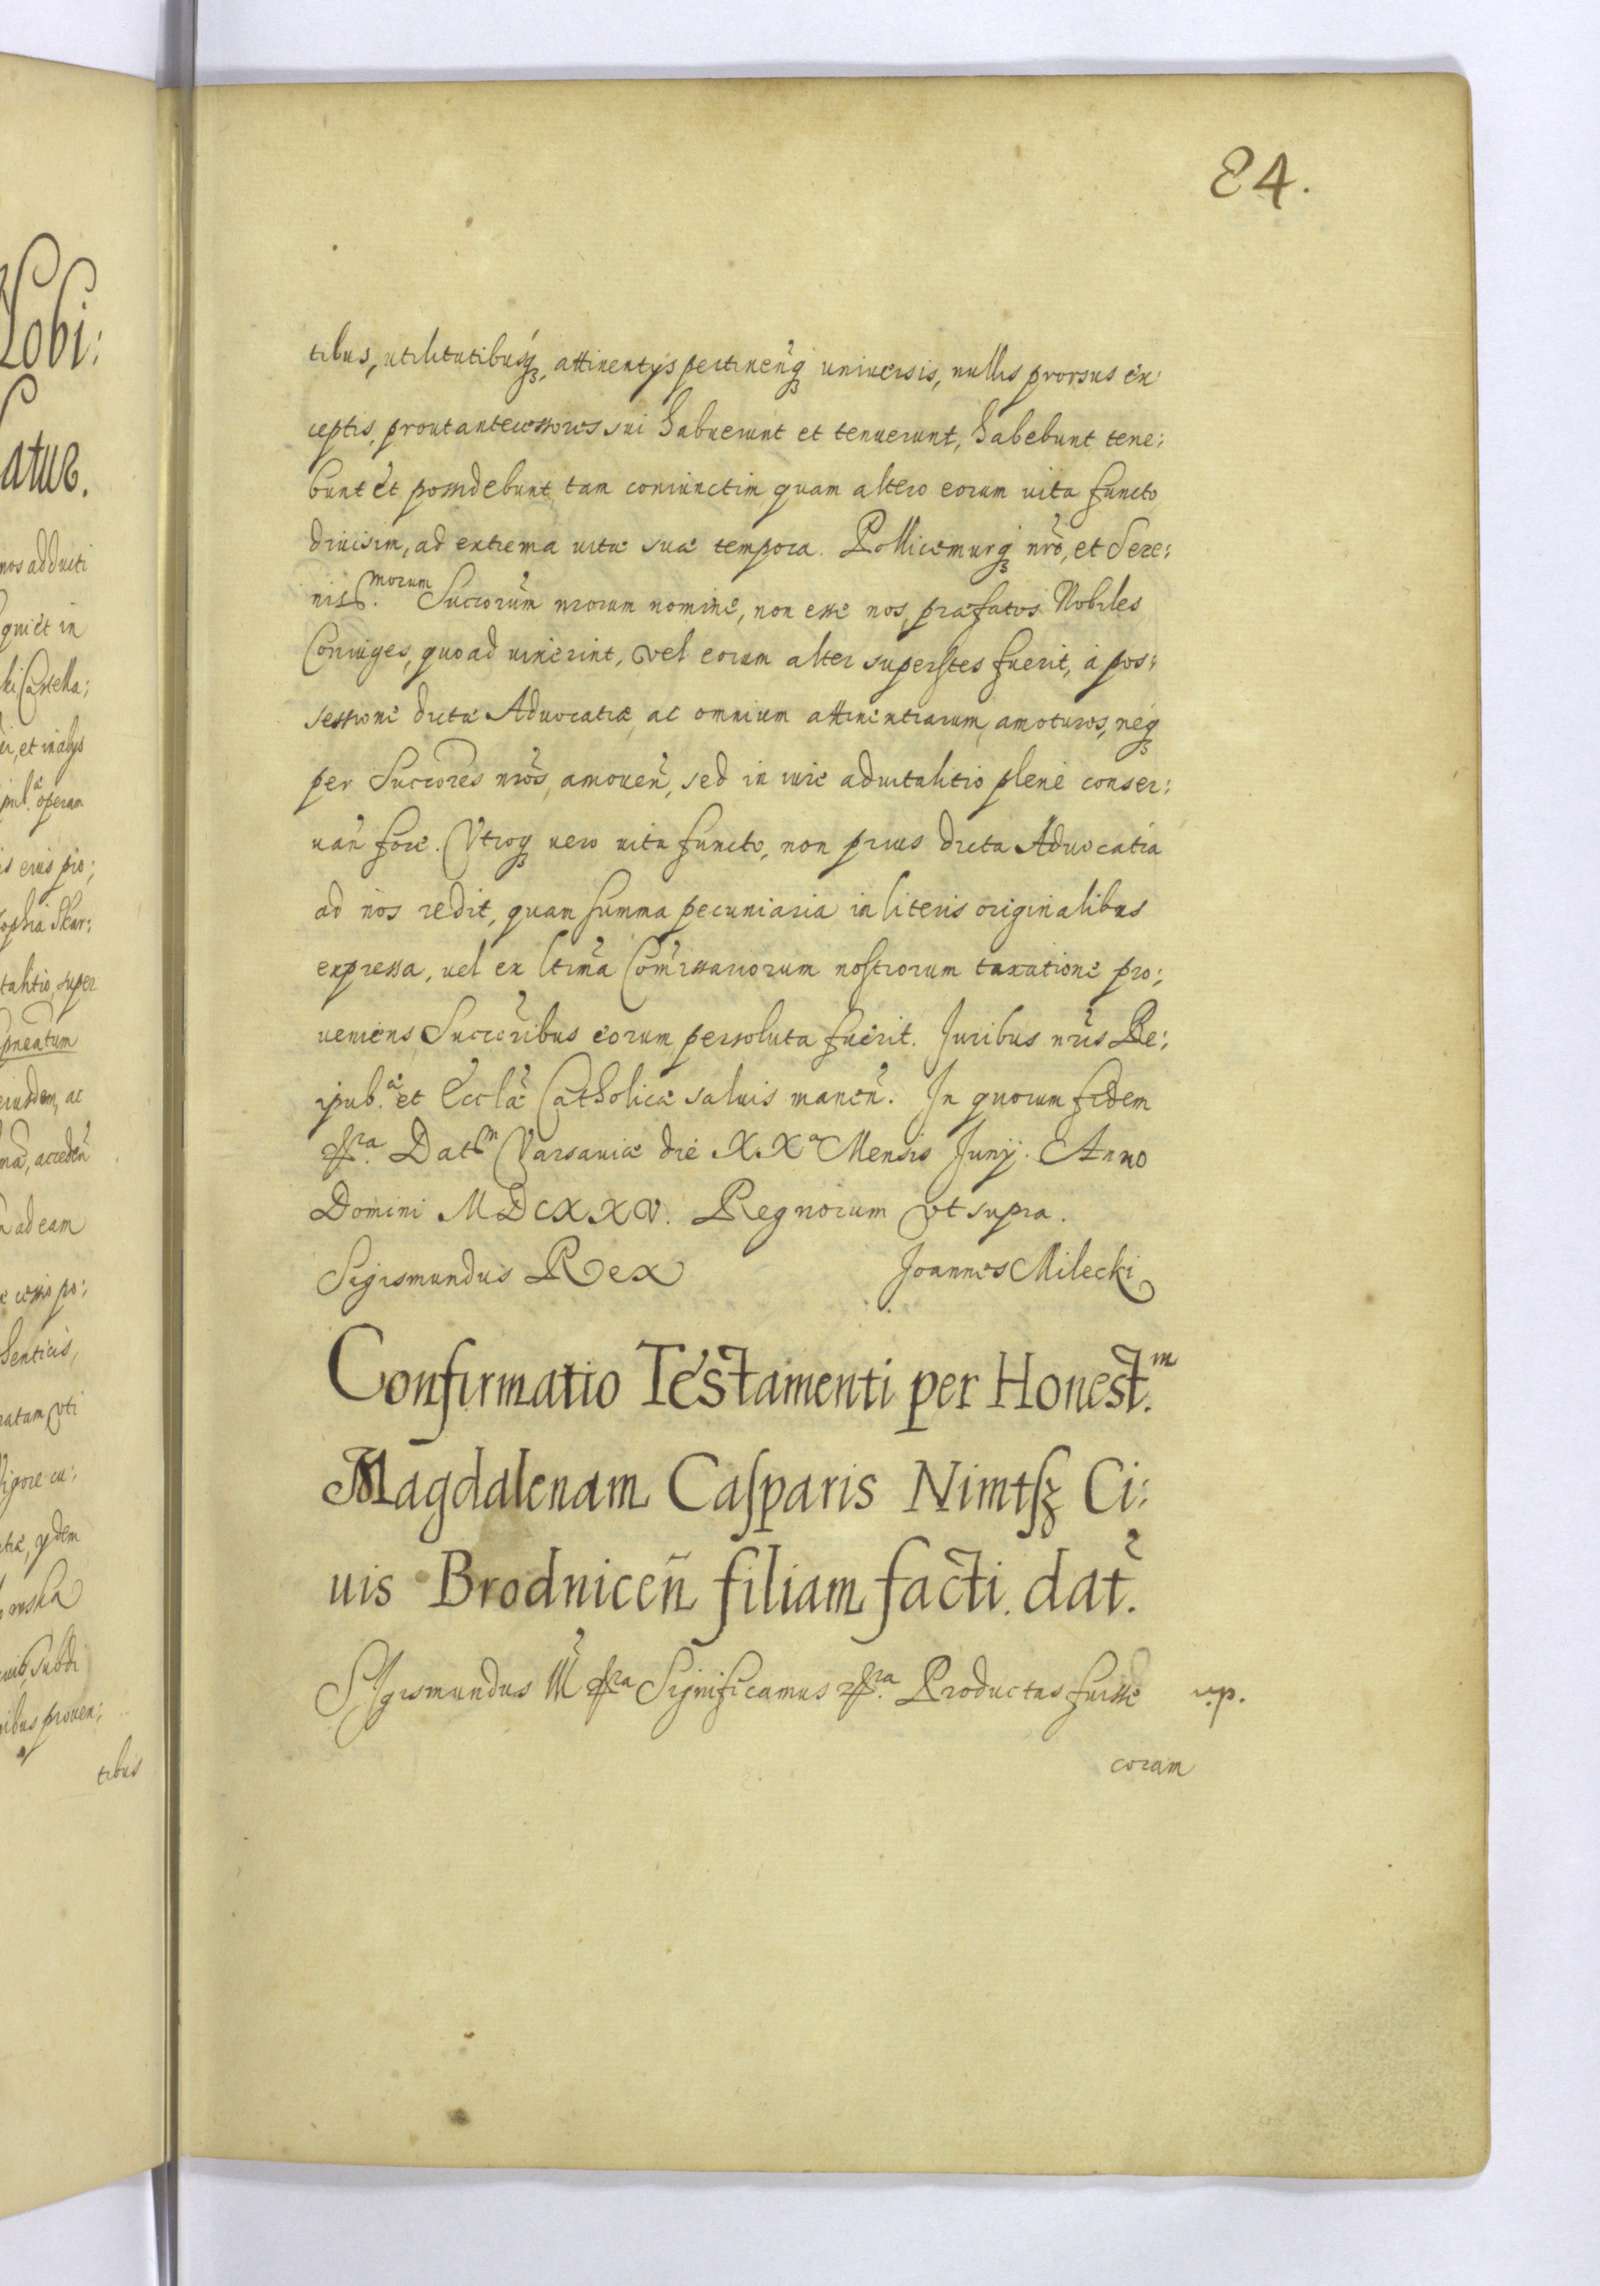 84.
tibus, utilitatibusq₃, attinentijs pertineñq₃ uniuersis, nullis prorsus ex
ceptis, prout antecessores sui habuerunt et tenuerunt, habebunt tene:
bunt et possidebunt tam coniunctim quam altero eorum uita functo
diuisim, ad extrema uitæ suæ tempora. Pollicemurq₃ nrõ, et Sere:
niss.morum Succorũm nrorum nomine, non esse nos, præfatos Nobiles
Coniuges, quoad uixerint, vel eorum alter superstes fuerit, à pos:
sessione dictæ Aduocatiæ, ac omnium attinentiarum, amoturos, neq₃
per Succores nrõs, amoueñ, sed in iure aduitalitio plene conser:
uañ fore. Vtroq₃ uero uita functo, non prius dicta Aduocatia
ad nos redit, quam summa pecuniaria in literis originalibus
expressa, uel ex ltimã Comissariorum nostrorum taxatione pro:
ueniens Succoribus eorum persoluta fuerit. Juribus nris Re:
ipub.æ et Ecclæ Catholicæ saluis maneñ. In quorum fidem
etc.ra Datm Varsauiæ die XXa Mensis Junij. Anno
Domini MDCXXV. Regnorum vt supra.
Sigismundus Rex Joannes Milecki
Confirmatio Testamenti per Honest.m
Magdalenam Casparis Nimtsz Ci:
uis Brodniceñ filiam facti. dat.
Sigismundus III etc.ra Significamus etc.ra Productas fuisse r.p.
coram
nos adducti
qui et in
ki Castella:
di, et in alijs
ipub.æ operam
is eius pio;
ophia Skar:
talitio, super
eiusdem, ac
na, accedeñ
ad eam
natam vti
Vigore cu:
tiæ, ijdem
ribus prouen:
tibus